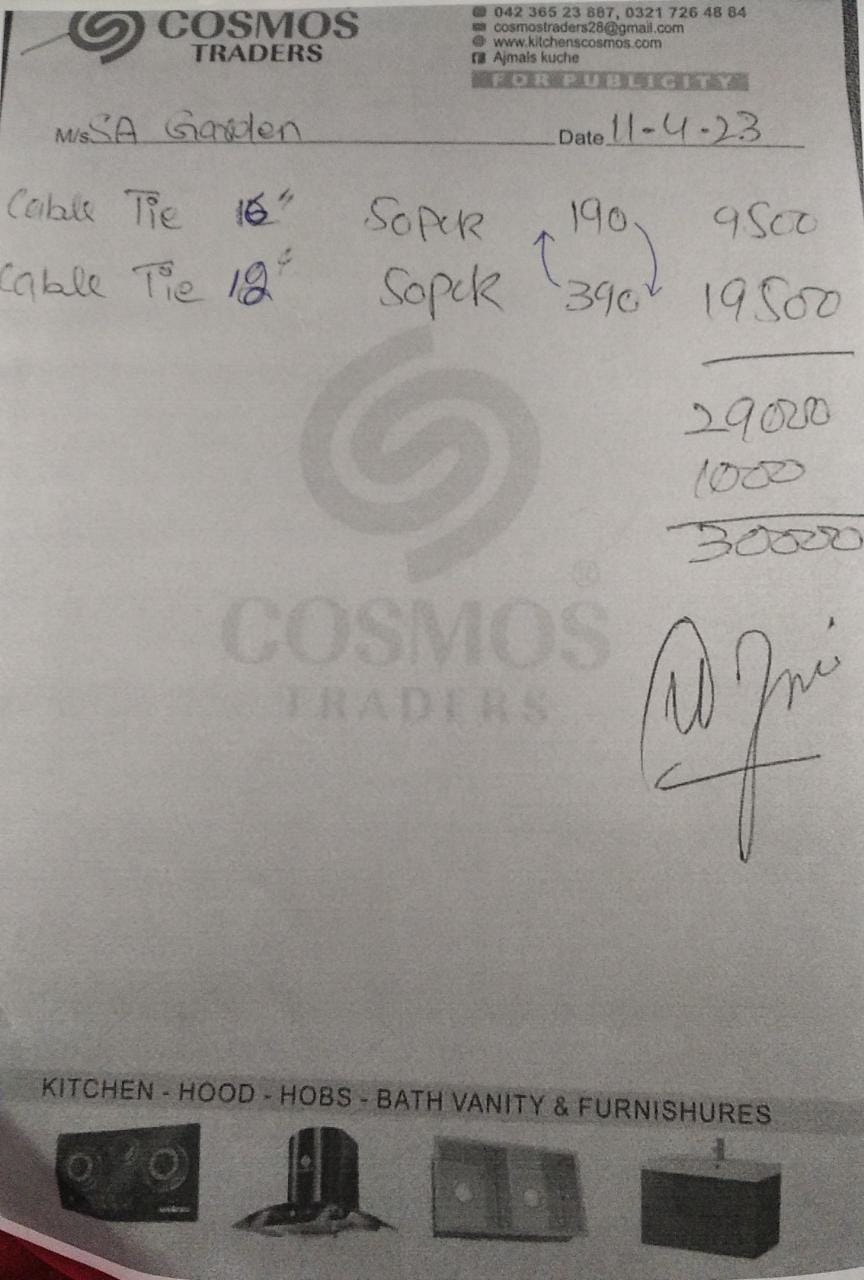 COSMOS
TRADERS
042 365 23 887, 0321 726 48 84
cosmostraders28@gmail.com
www.kitchenscosmos.com
Ajmals kuche
FOR PUBLICITY
M/s SA Garden Date 11-4-23
Cable Tie 16" 50pck 190 9500
Cable Tie 12" 50pck 390 19500
29000
1000
30000
COSMOS
TRADERS
KITCHEN - HOOD - HOBS - BATH VANITY & FURNISHURES